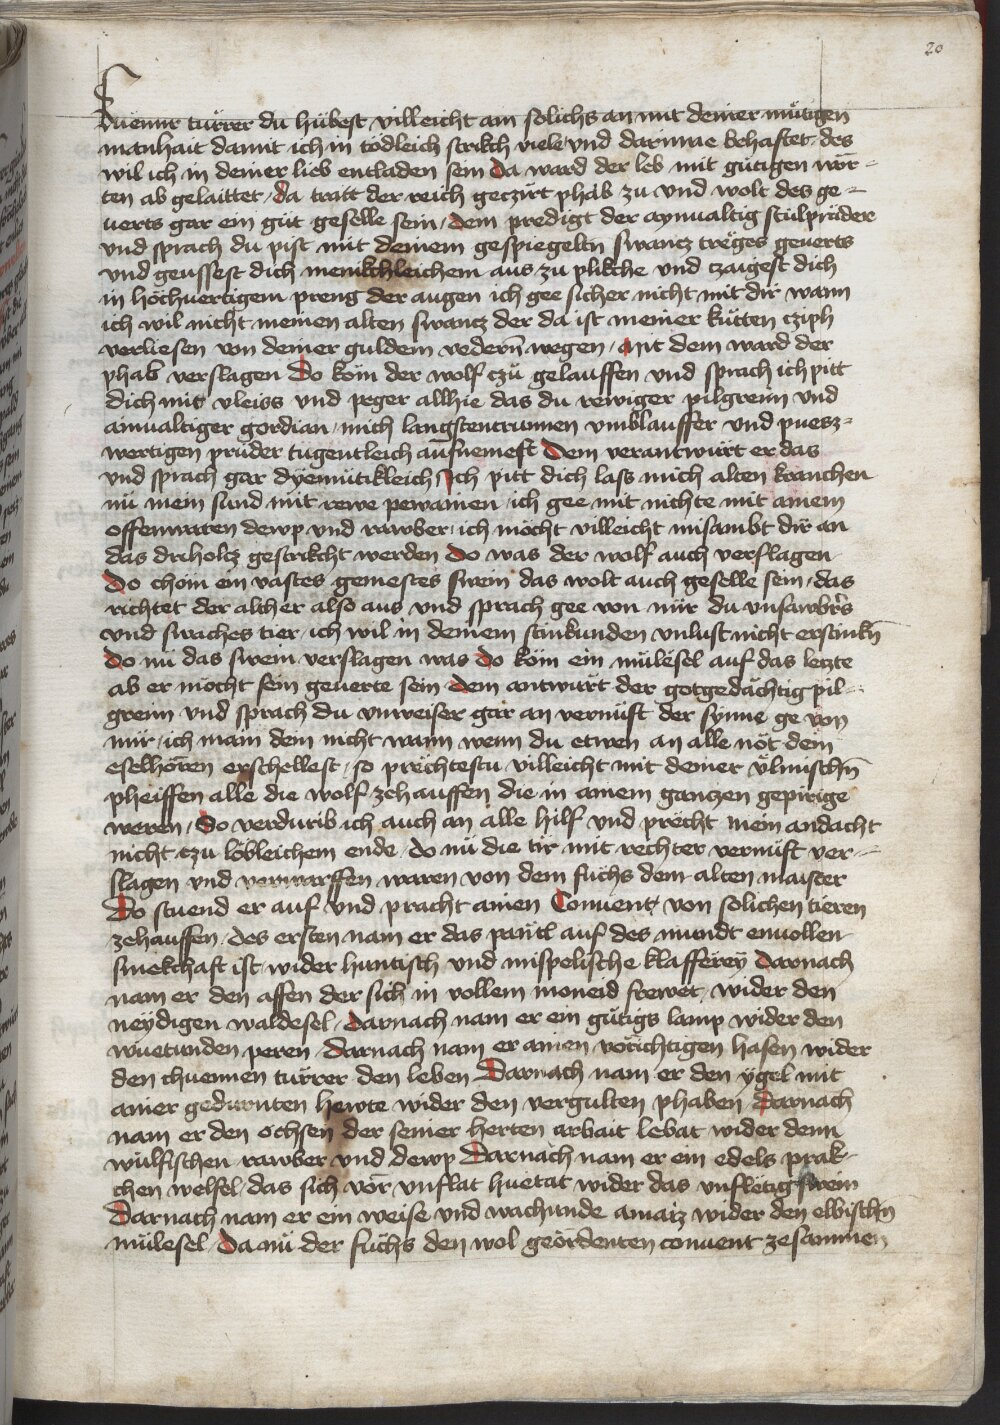 20
Chuenur turrer du hübest villeicht ain solichs an mit deiner mütigen
manhait damit ich in tödleich strikch viele vnd darinne behaftet des
wil ich in deiner lieb entladen sein Da ward der leb mit gütigen wor-
ten ab gelaittet / da tratt der reich geczirt phab zu vnd wolt des ge-
uerts gar ein güt geselle sein / dem predigt der aynualtig stulprüder
vnd sprach du pist mit deinem gespiegeltn swancz treges geuerts
vnd geussest dich menikchleichem aus zu plikche vnd czaigest dich
in höchuertigem preng der augen ich gee sicher nicht mit dir wann
ich wil nicht meinen alten swancz der da ist meiner kutten cziph
verliesen von deiner guldem vedern wegen / mit dem ward der
phab verslagen Do kom der wolf czu gelauffen vnd sprach ich pitt
dich mit vleiss vnd peger allhie das du rewiger pilgreim vnd
ainualtiger gordian mich langstentrunnen vmblauffer vnd puesz-
wertigen prüder tugentleich aufnemest Dem verantwurt er das
vnd sprach gar dyemütikleich Ich pitt dich lass mich alten kranchen
nu mein sund mit rewe pewainen ich gee mit nichte mit ainem
offenwaren dewp vnd rawber ich möcht villeicht misambt dir an
das dreholtz gestrikcht werden Do was der wolf auch verslagen
Do chom ein vastes gemestes swein das wolt auch geselle sein / das
richtet der altherr also aus vnd sprach gee von mir du vnsawbrs
vnd swaches tier / ich wil in deinem stinkunden vnlust nicht erstinkn
Do nu das swein verslagen was Do kom ein mülesel auf das letzte
ab er möcht sein geuerte sein Dem antwurt der gotgedächtig pil-
greim vnd sprach du vnweiser gar an vernüft der synne ge von
mir / ich main dein nicht wann wenn du etwen an alle nöt dein
eselhoren erschellest / so prechtestu villeicht mit deiner vlmischn
pheiffen alle die wolf zehauffen die in ainem ganczen gepirige
weren / So verdurib ich auch an alle hilf vnd precht mein andacht
nicht czu lobleichem ende do nu die tir mit rechter vernüft ver-
slagen vnd verwarffen waren von dem fuchs dem alten maister
Do stuend er auf vnd pracht ainen Conuent von solichen tieren
zehauffen / des ersten nam er das pantl auf des mundt enuollen
smekchaft ist wider huntisch vnd mispelische klafferey Darnach
nam er den affen der sich in vollem moneid frewet / wider den
neydigen waldesel / Darnach nam er ein gütigs lamp wider den
wuetunden peren Darnach nam er ainen vorichtigen hasen wider
den chuennen turrer den leben Darnach nam er den ygel mit
ainer gedurnten hewte wider den vergulten phaben Darnach
nam er den ochsen der seiner herten arbait lebat wider denn
wulfischen rawber vnd dewp Darnach nam er ein edels prak-
chen welfel das sich vor vnflat huetat wider das vnfletig swein
Darnach nam er ein weise vnd wachunde amaiz wider den elbischn
mülesel / Da nu der fuchs den wol geördenten conuent zesammen